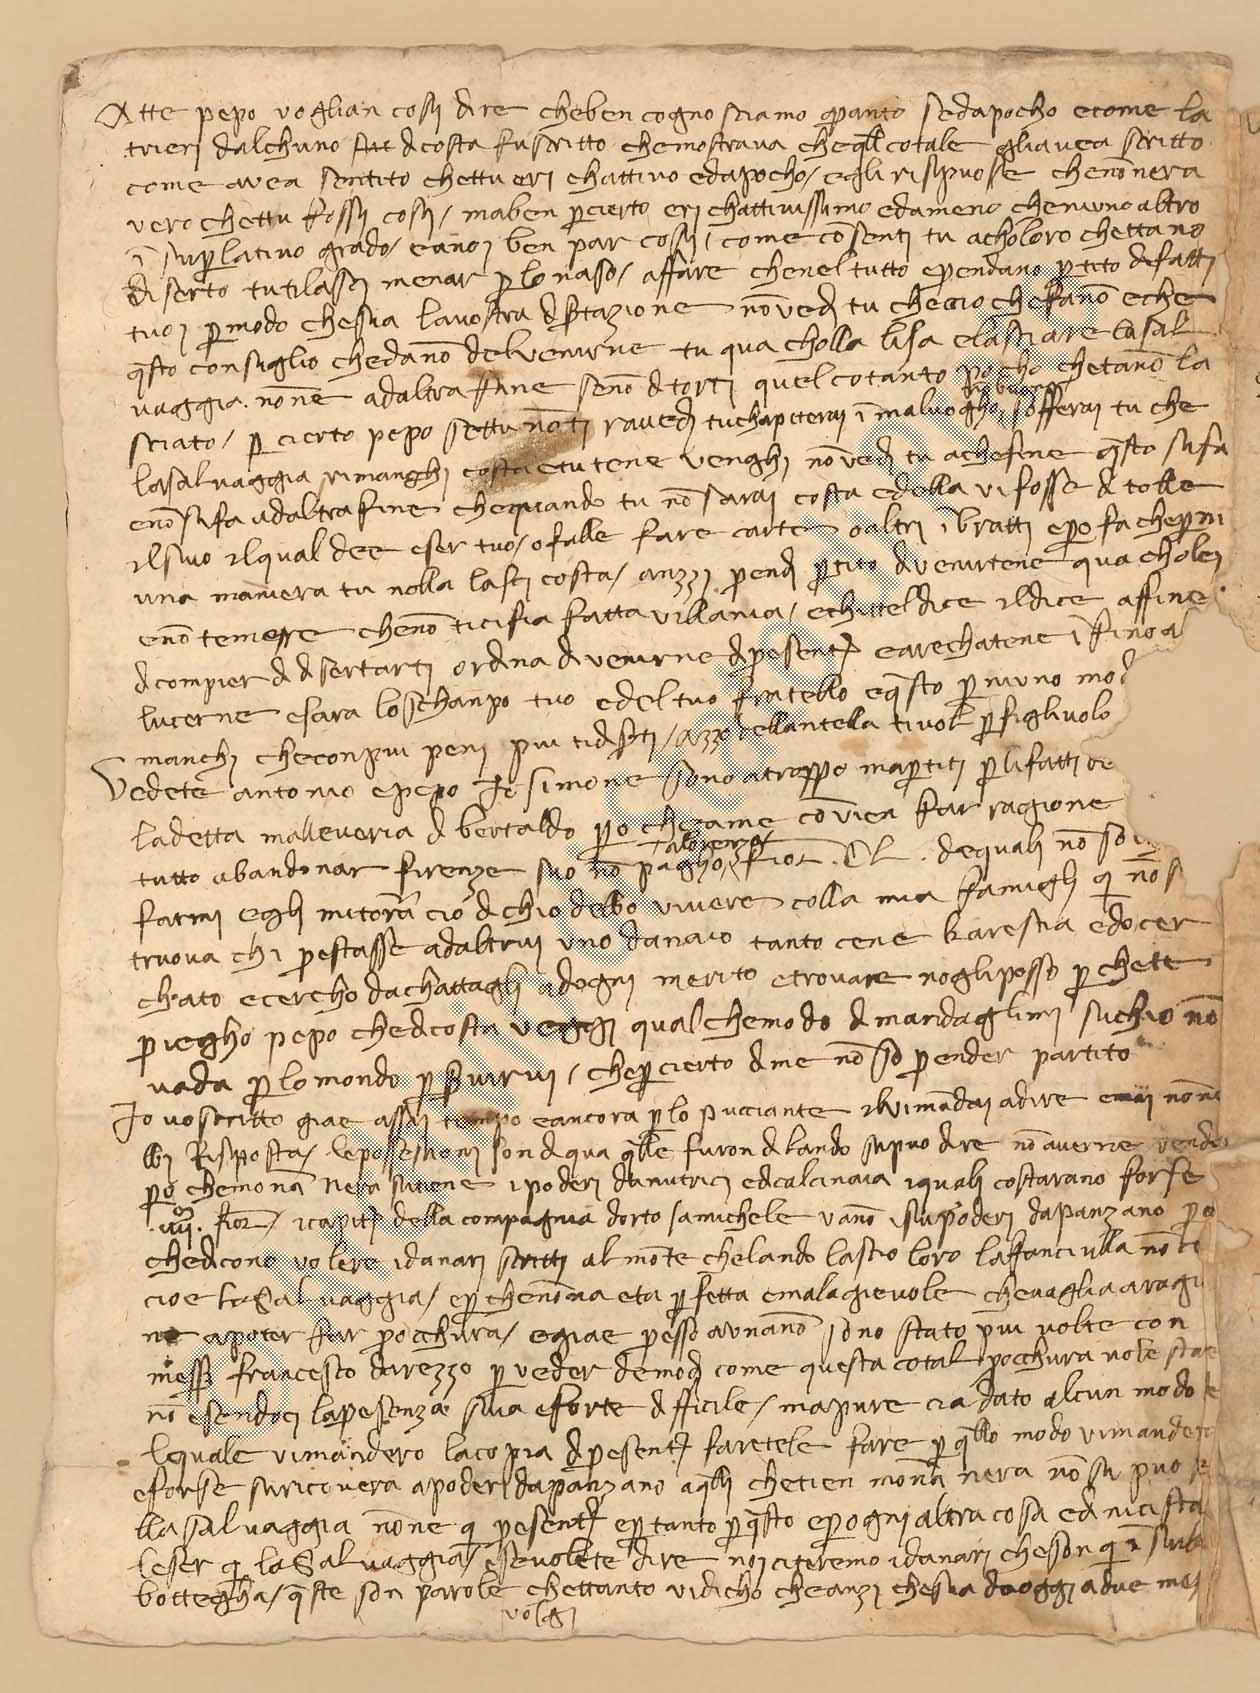 Atte pepo voglian cosi dire cheben cognosciamo quanto sedapocho ecome la
trieri dalchuno dicosta fuscritto chemostraua chequel cotale gliauea scritto
come avea sentito chettu eri chattivo edapocho / egli rispuosse chenonnera
vero chettu fossi cosi / maben percierto eri chattivissimo edameno cheniuno altro
i superlativo grado / eanoi ben par cosi / come consenti tu acholoro chettano
diserto tutilassi menar perlonaso / affare chenel tutto prendano partito difatti
tuoi permodo chessia lavostra distazione nonvedi tu checcio chefanno eche
questo consiglio chedanno delvenirne tu qua cholla lisa elasciare lasal
vaggia . nonne adaltra fine senon ditorti quel cotanto pocho chetanno la
sciato / per cierto pepo settu nonti ravedi tuchapiterai i malluogho / sofferai tu che
lasalvaggia rimanghi costa etutene venghi nonvedi tu achefine questo sifa
enonsifa adaltra fine chequando tu nonsarai costa edella vifosse ditolle
ilsuo ilqual dee eser tuo / ofalle fare carte oaltri ibratti epero fa cheperni
una maniera tu nolla lasci costa / anzzi prendi partito divenirtene qua cholei
enontemere chenonticifia fatta villania / echitteldice ildice affine
dicompier didisertarti ordina divenirne dipresente earechatene i fino a
lucerne esara loschanpo tuo edel tuo fratello equesto perniuno mod
manchi checonpiu peni piu tidiserti / azzo dellantella tivol perfigliuolo
Vedete antonio epepo Io simone sono atroppo mapartiti perlifatti de
ladetta malleveria di bertaldo pero chezame convien far ragione
tutto abandonar firenze suo non pagho fior . CL . dequali non so
farmi egli mitorra cio dichio debbo vivere colla mia famigli qui non s
truova chi prestasse adaltrui uno danaio tanto cene karestia edocer
chato ecercho dachattagli adogni merito etrovare nogliposso perchette
priegho pepo chedicosta veggi qualchemodo dimandaglimi sichio non
vada perlomondo perservirvi / chepercierto dime non so prender partito
Io voscritto giae assai tempo eancora perlo pucciante ilvimandai adire emai nonne
bbi Risposta / lepossessioni sondiqua quelle furon dilando sipuo dire nonaverne vende
pero chemonna Nera sitiene ipoderi damutrici edicalcinaia iquali costarano forse
.iiii. fior / icapitani della compagnia dorto samichele vanno isupoderi dapanzano pero
chedicono volere idanari scritti al monte chelando lascio loro laffanciulla nonce
cioe laSalvaggia / eperchenonna eta perfetta emalagievole chevaglia aragio
ne apoter far procchura / egiae presso aunanno sono stato piu volte con
messer francesco darezzo per veder demodi come questa cotal procchura vole stare
non esendoci lapresenza sua eforte dificile / mapure cia dato alcun modo de
lequale vimandero lacopia dipresente faretele fare perquello modo vimandero
eforse siricovera apoderi dapanzano aquelli chetien monna nera non si puo se
lla salvaggia nonne qui presente epertanto perquesto eperogni altra cosa edi nicista
leser qui laSalvaggia / esevolete dire noiciteremo idanari chesson qui i sula
bottegha / queste son parole chettanto vidicho cheanzi chessia daoggi adue mesi
volgi